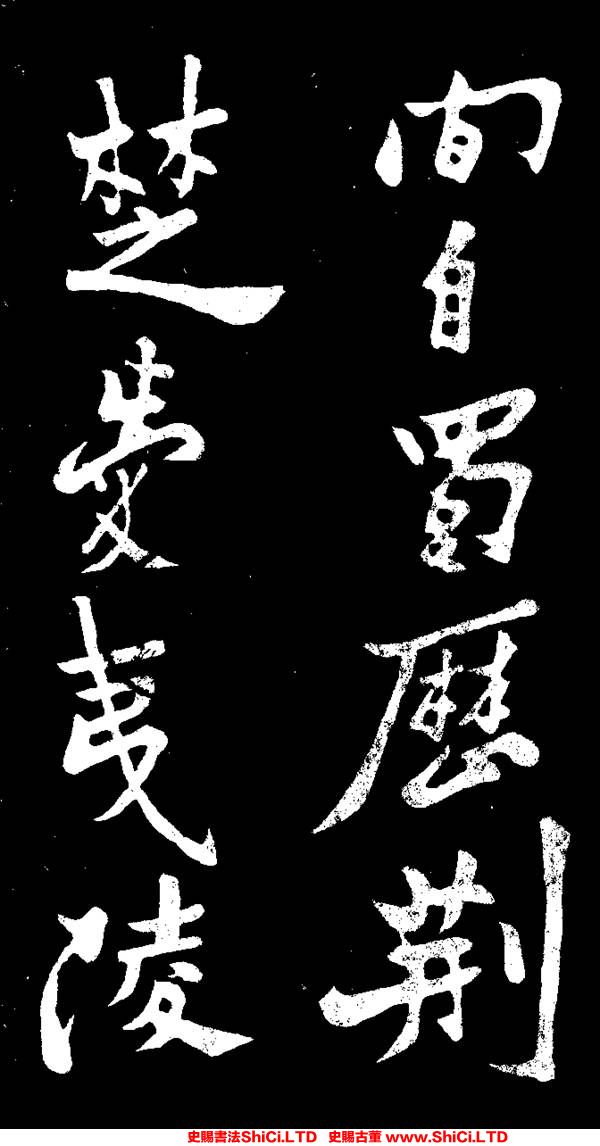 間自蜀歷荊
楚愛夷陵
史賜書法ShiCi.LTD 史賜古董 www.ShiCi.LTD